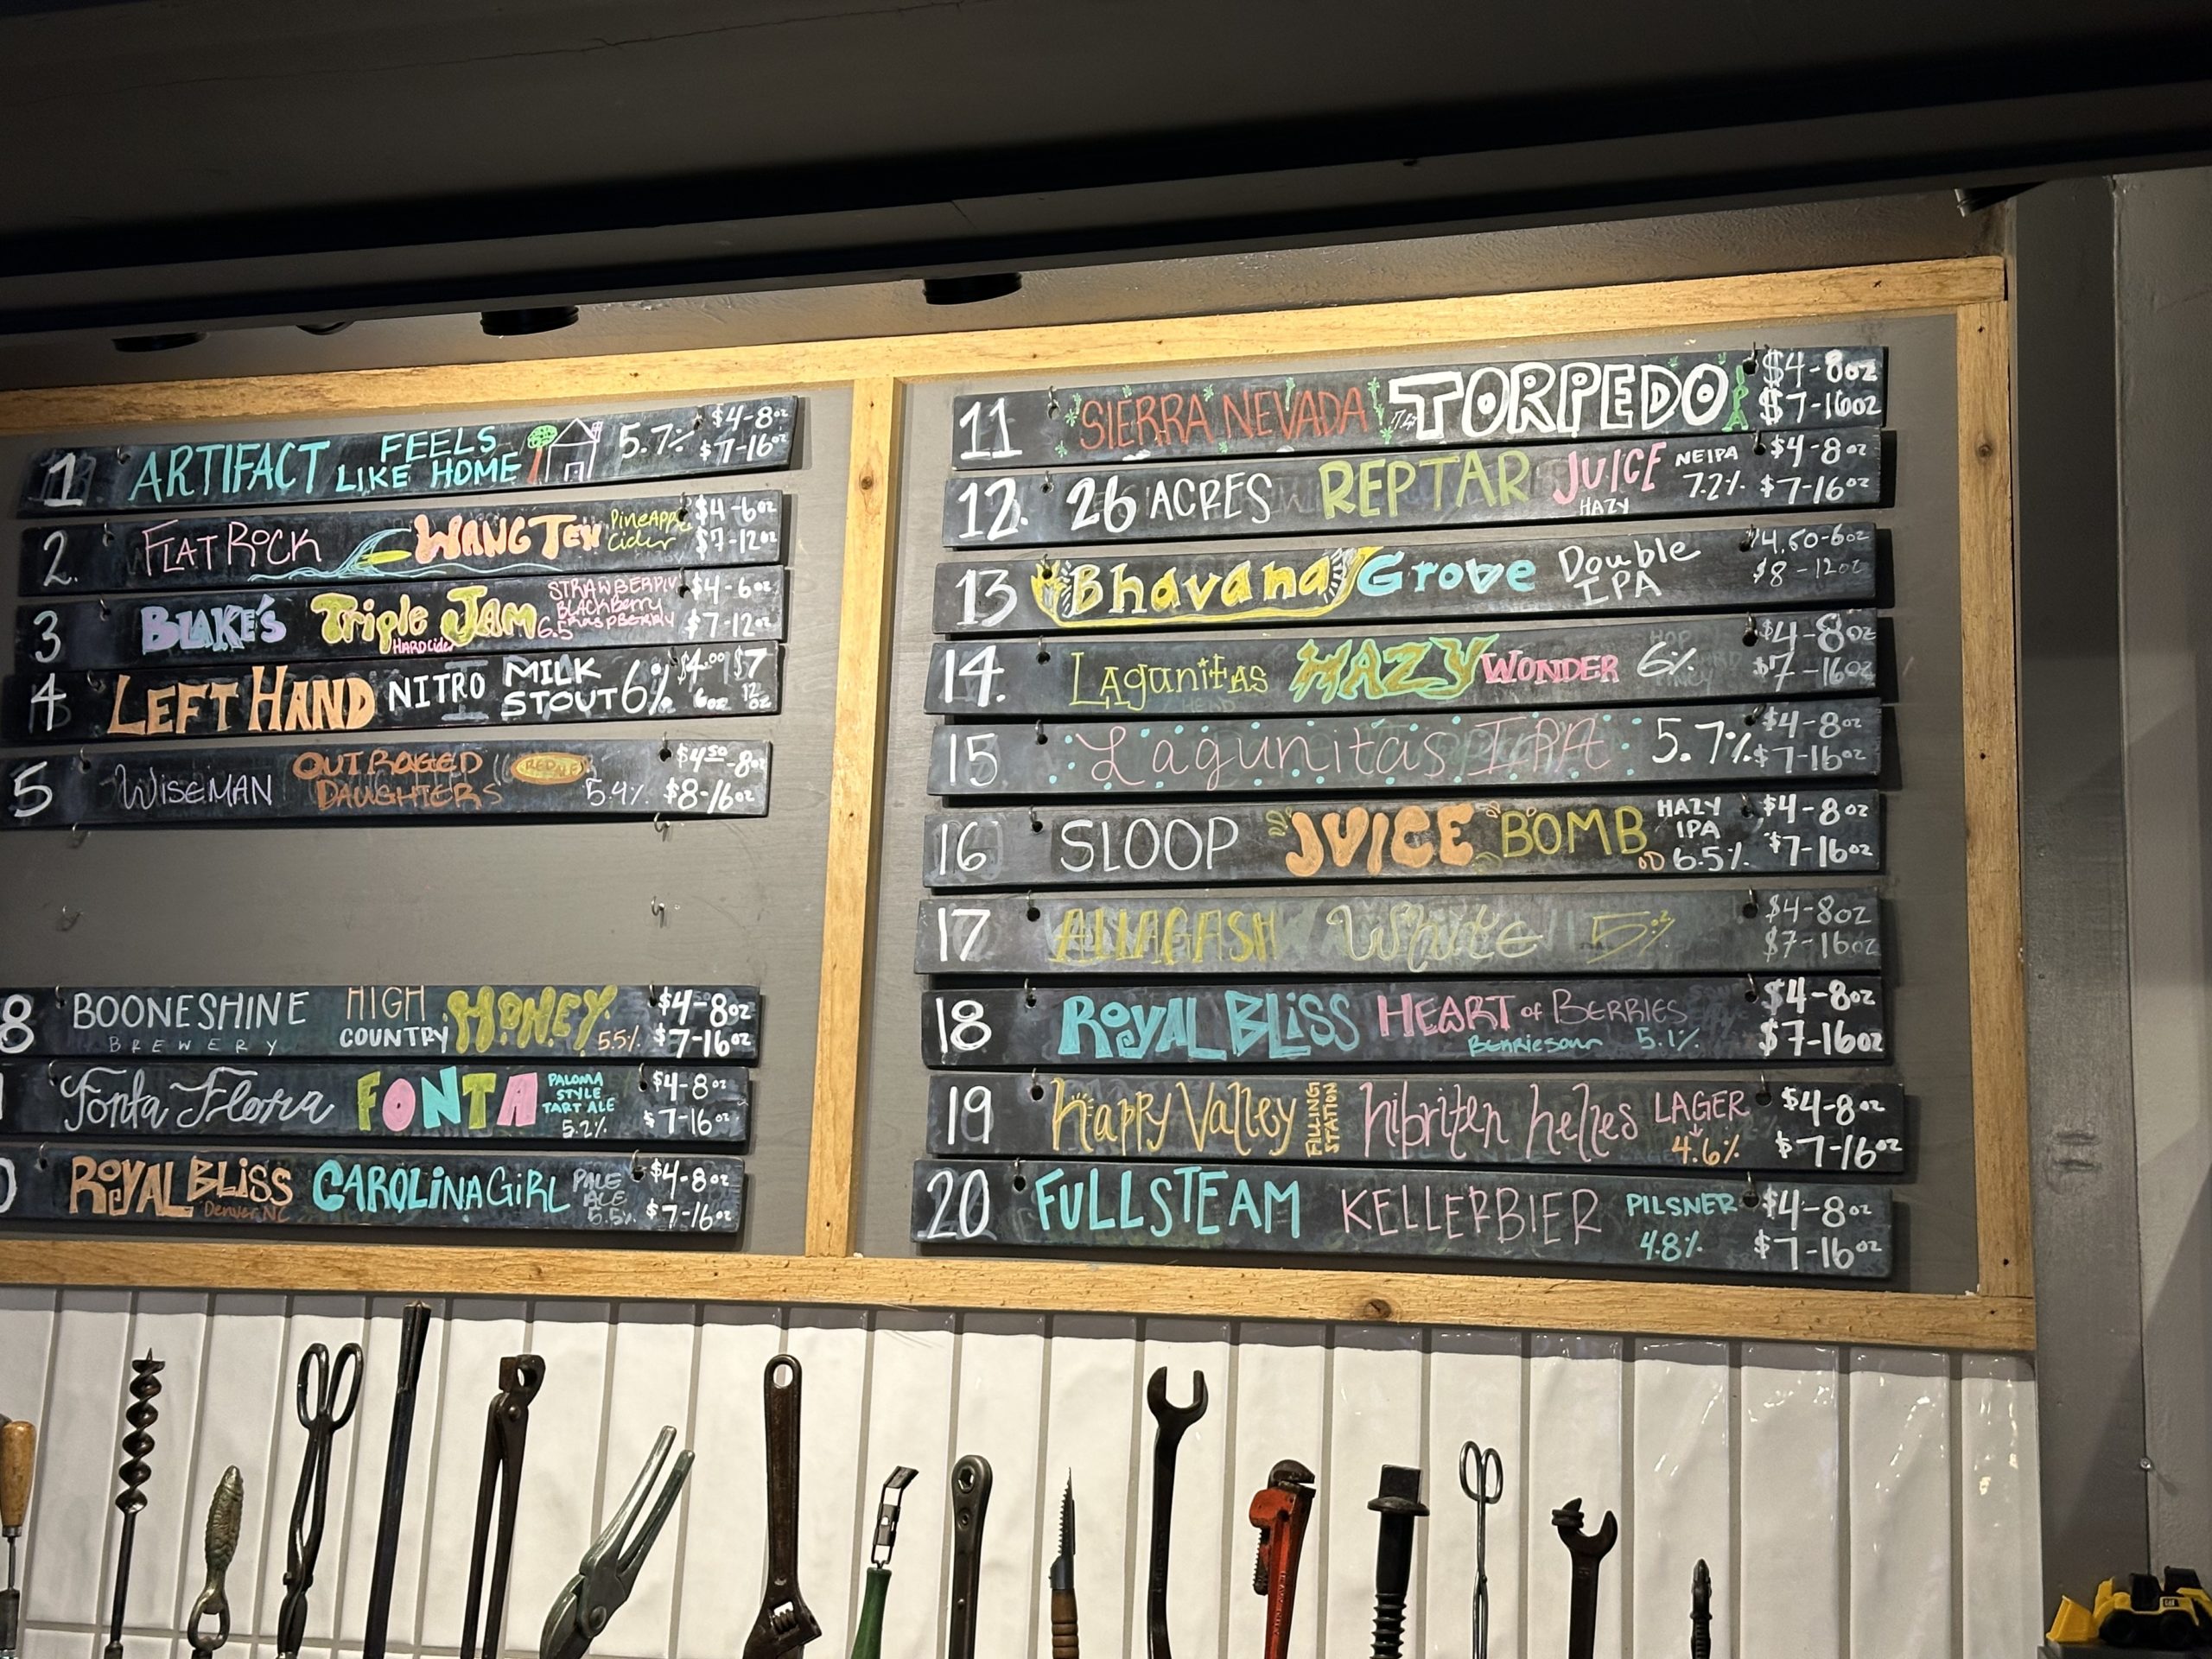 1 ARTIFACT FEELS LIKE HOME 5.7% $4-8oz $7-16oz
2. FLAT ROCK WANG TEN PineApple Cider $4-6oz $7-12oz
3 BLAKE'S Triple Jam HARD Cider 6.5 STRAWBERRY BLACKBerry RaspBERRY $4-6oz $7-12oz
4 LEFT HAND NITRO MILK STOUT 6% $4.00 6oz $7 12oz
5 WISEMAN OUTRAGED DAUGHTERS 5.4% $4.50-8oz $8-16oz
8 BOONESHINE BREWERY HIGH COUNTRY HONEY 5.5% $4-8oz $7-16oz
Fonta Flora FONTA PALOMA STYLE TART ALE 5.2% $4-8oz $7-16oz
0 ROYAL BLISS Denver, NC CAROLINA GIRL PALE ALE 5.5% $4-8oz $7-16oz
11 SIERRA NEVADA TORPEDO IPA $4-8oz $7-16oz
12. 26 ACRES REPTAR JUICE HAZY NEIPA 7.2% $4-8oz $7-16oz
13 Bhavana Grove Double IPA $4.50-6oz $8-12oz
14. Lagunitas HAZY WONDER 6% $4-8oz $7-16oz
15 Lagunitas IPA 5.7% $4-8oz $7-16oz
16 SLOOP JUICE BOMB HAZY IPA 6.5% $4-8oz $7-16oz
17 ALLAGASH White 5% $4-8oz $7-16oz
18 ROYAL BLISS HEART of BERRIES 5.1% $4-8oz $7-16oz
19 Happy Valley FILLING STATION hibriten helles LAGER 4.6% $4-8oz $7-16oz
20 FULLSTEAM KELLERBIER PILSNER 4.8% $4-8oz $7-16oz